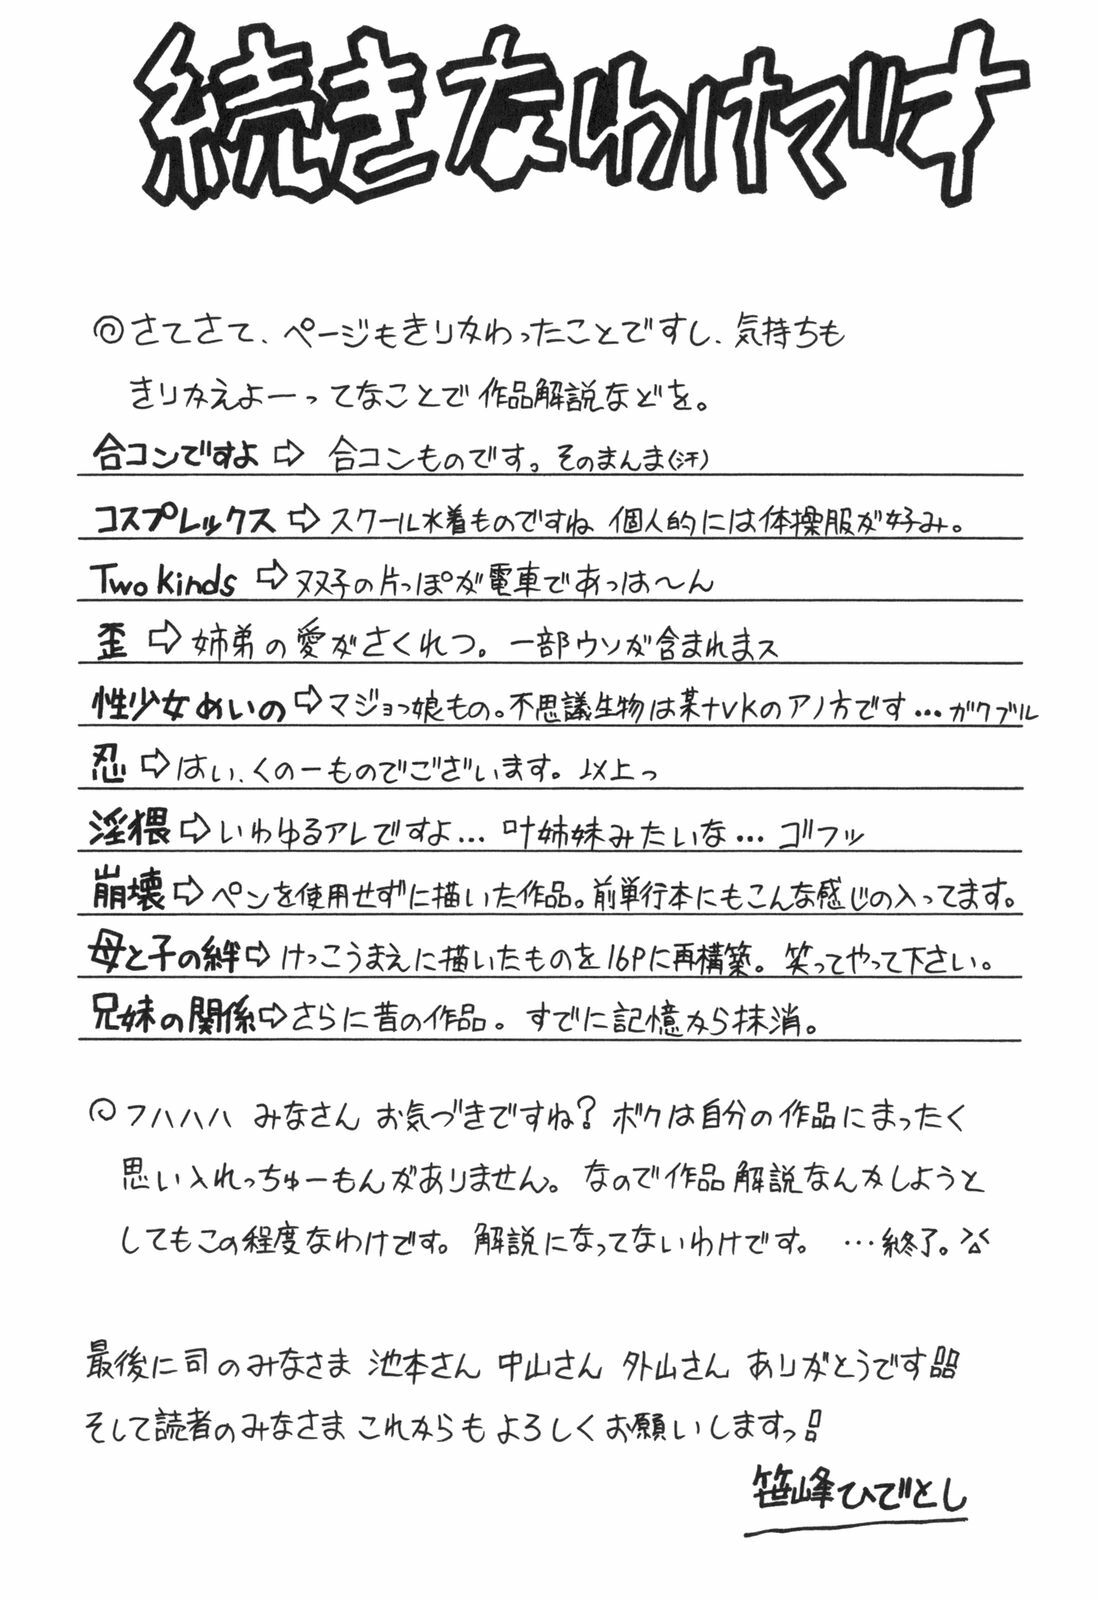 続きなわけです
◎さてさて、ページもきりかわったことですし、気持ちも
きりかえよーってなことで作品解説などを。
合コンですよ⇨合コンものです。そのまんま(汗)
コスプレックス⇨スクール水着ものですね 個人的には体操服が好み。
Two Kinds⇨双子の片っぽが電車であっは〜ん
歪⇨姉弟の愛がさくれつ。一部ウソが含まれまス
性少女めいの⇨マジョっ娘もの。不思議生物は某tvkのアノ方です…ガクブル
忍⇨はい、くの一ものでございます。以上っ
淫猥⇨いわゆるアレですよ… 叶姉妹みたいな… ゴフッ
崩壊⇨ペンを使用せずに描いた作品。前単行本にもこんな感じの入ってます。
母と子の絆⇨けっこうまえに描いたものを16Pに再構築。笑ってやって下さい。
兄妹の関係⇨さらに昔の作品。すでに記憶から抹消。
◎フハハハ みなさん お気づきですね？ ボクは自分の作品にまったく
思い入れっちゅーもんがありません。なので作品解説なんかしようと
してもこの程度なわけです。解説になってないわけです。 …終了。
最後に司のみなさま 池本さん 中山さん 外山さん ありがとうです!!
そして読者のみなさま これからも よろしくお願いしますっ!
笹峰ひでとし